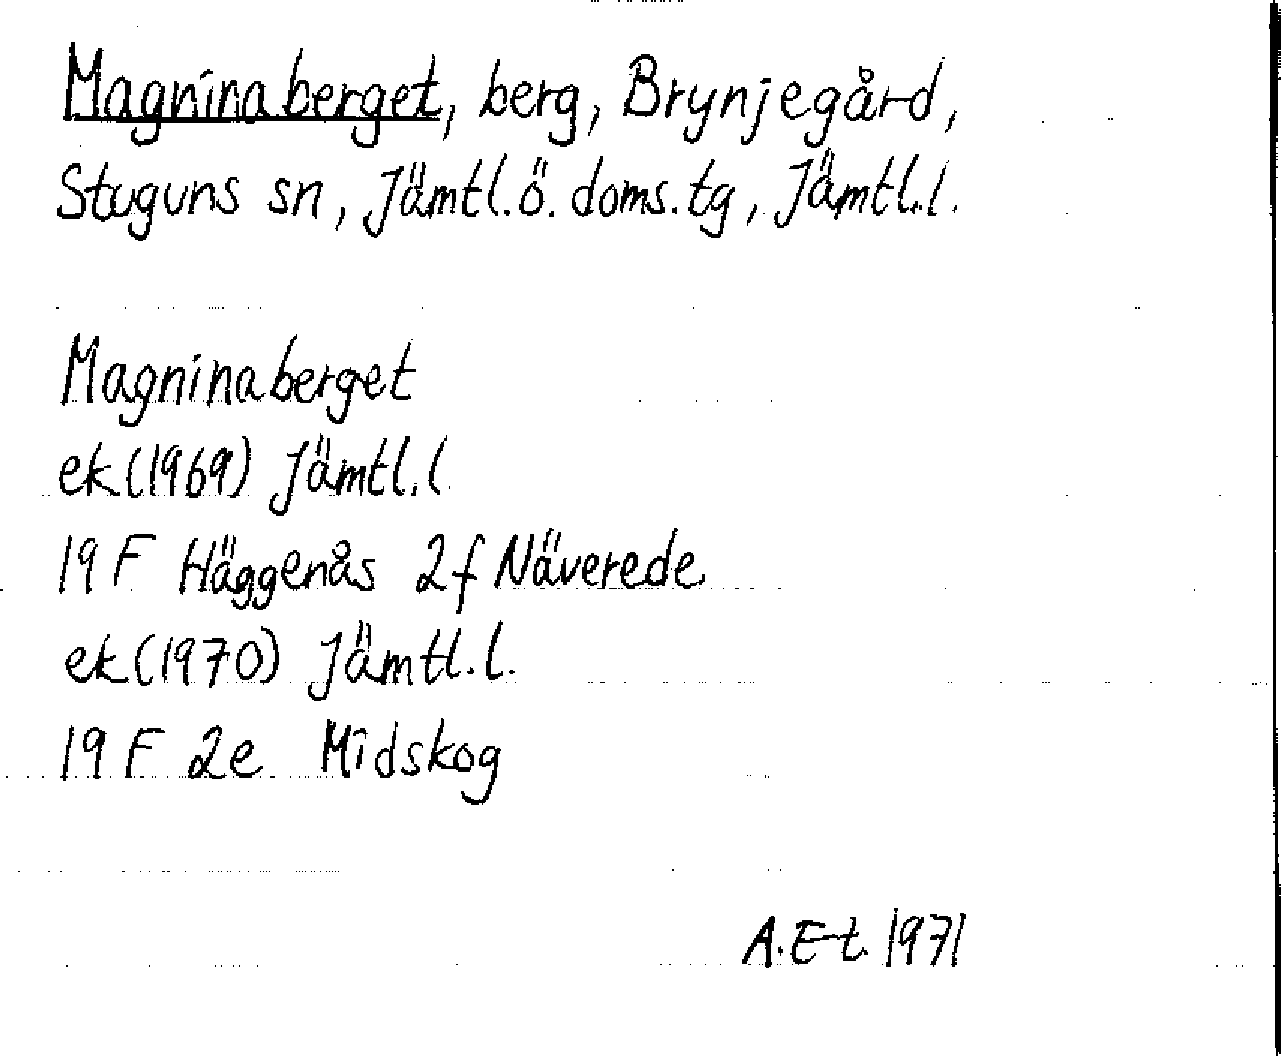 Magninaberget, berg, Brynjegård,
Stuguns sn, Jämtl.ö. doms.tg, Jämtl.l.
Magninaberget
ek(1969) Jämtl.l
19 F Häggenås 2f Näverede
ek(1970) Jämtl.l.
19 F 2e Midskog
A.Et. 1971